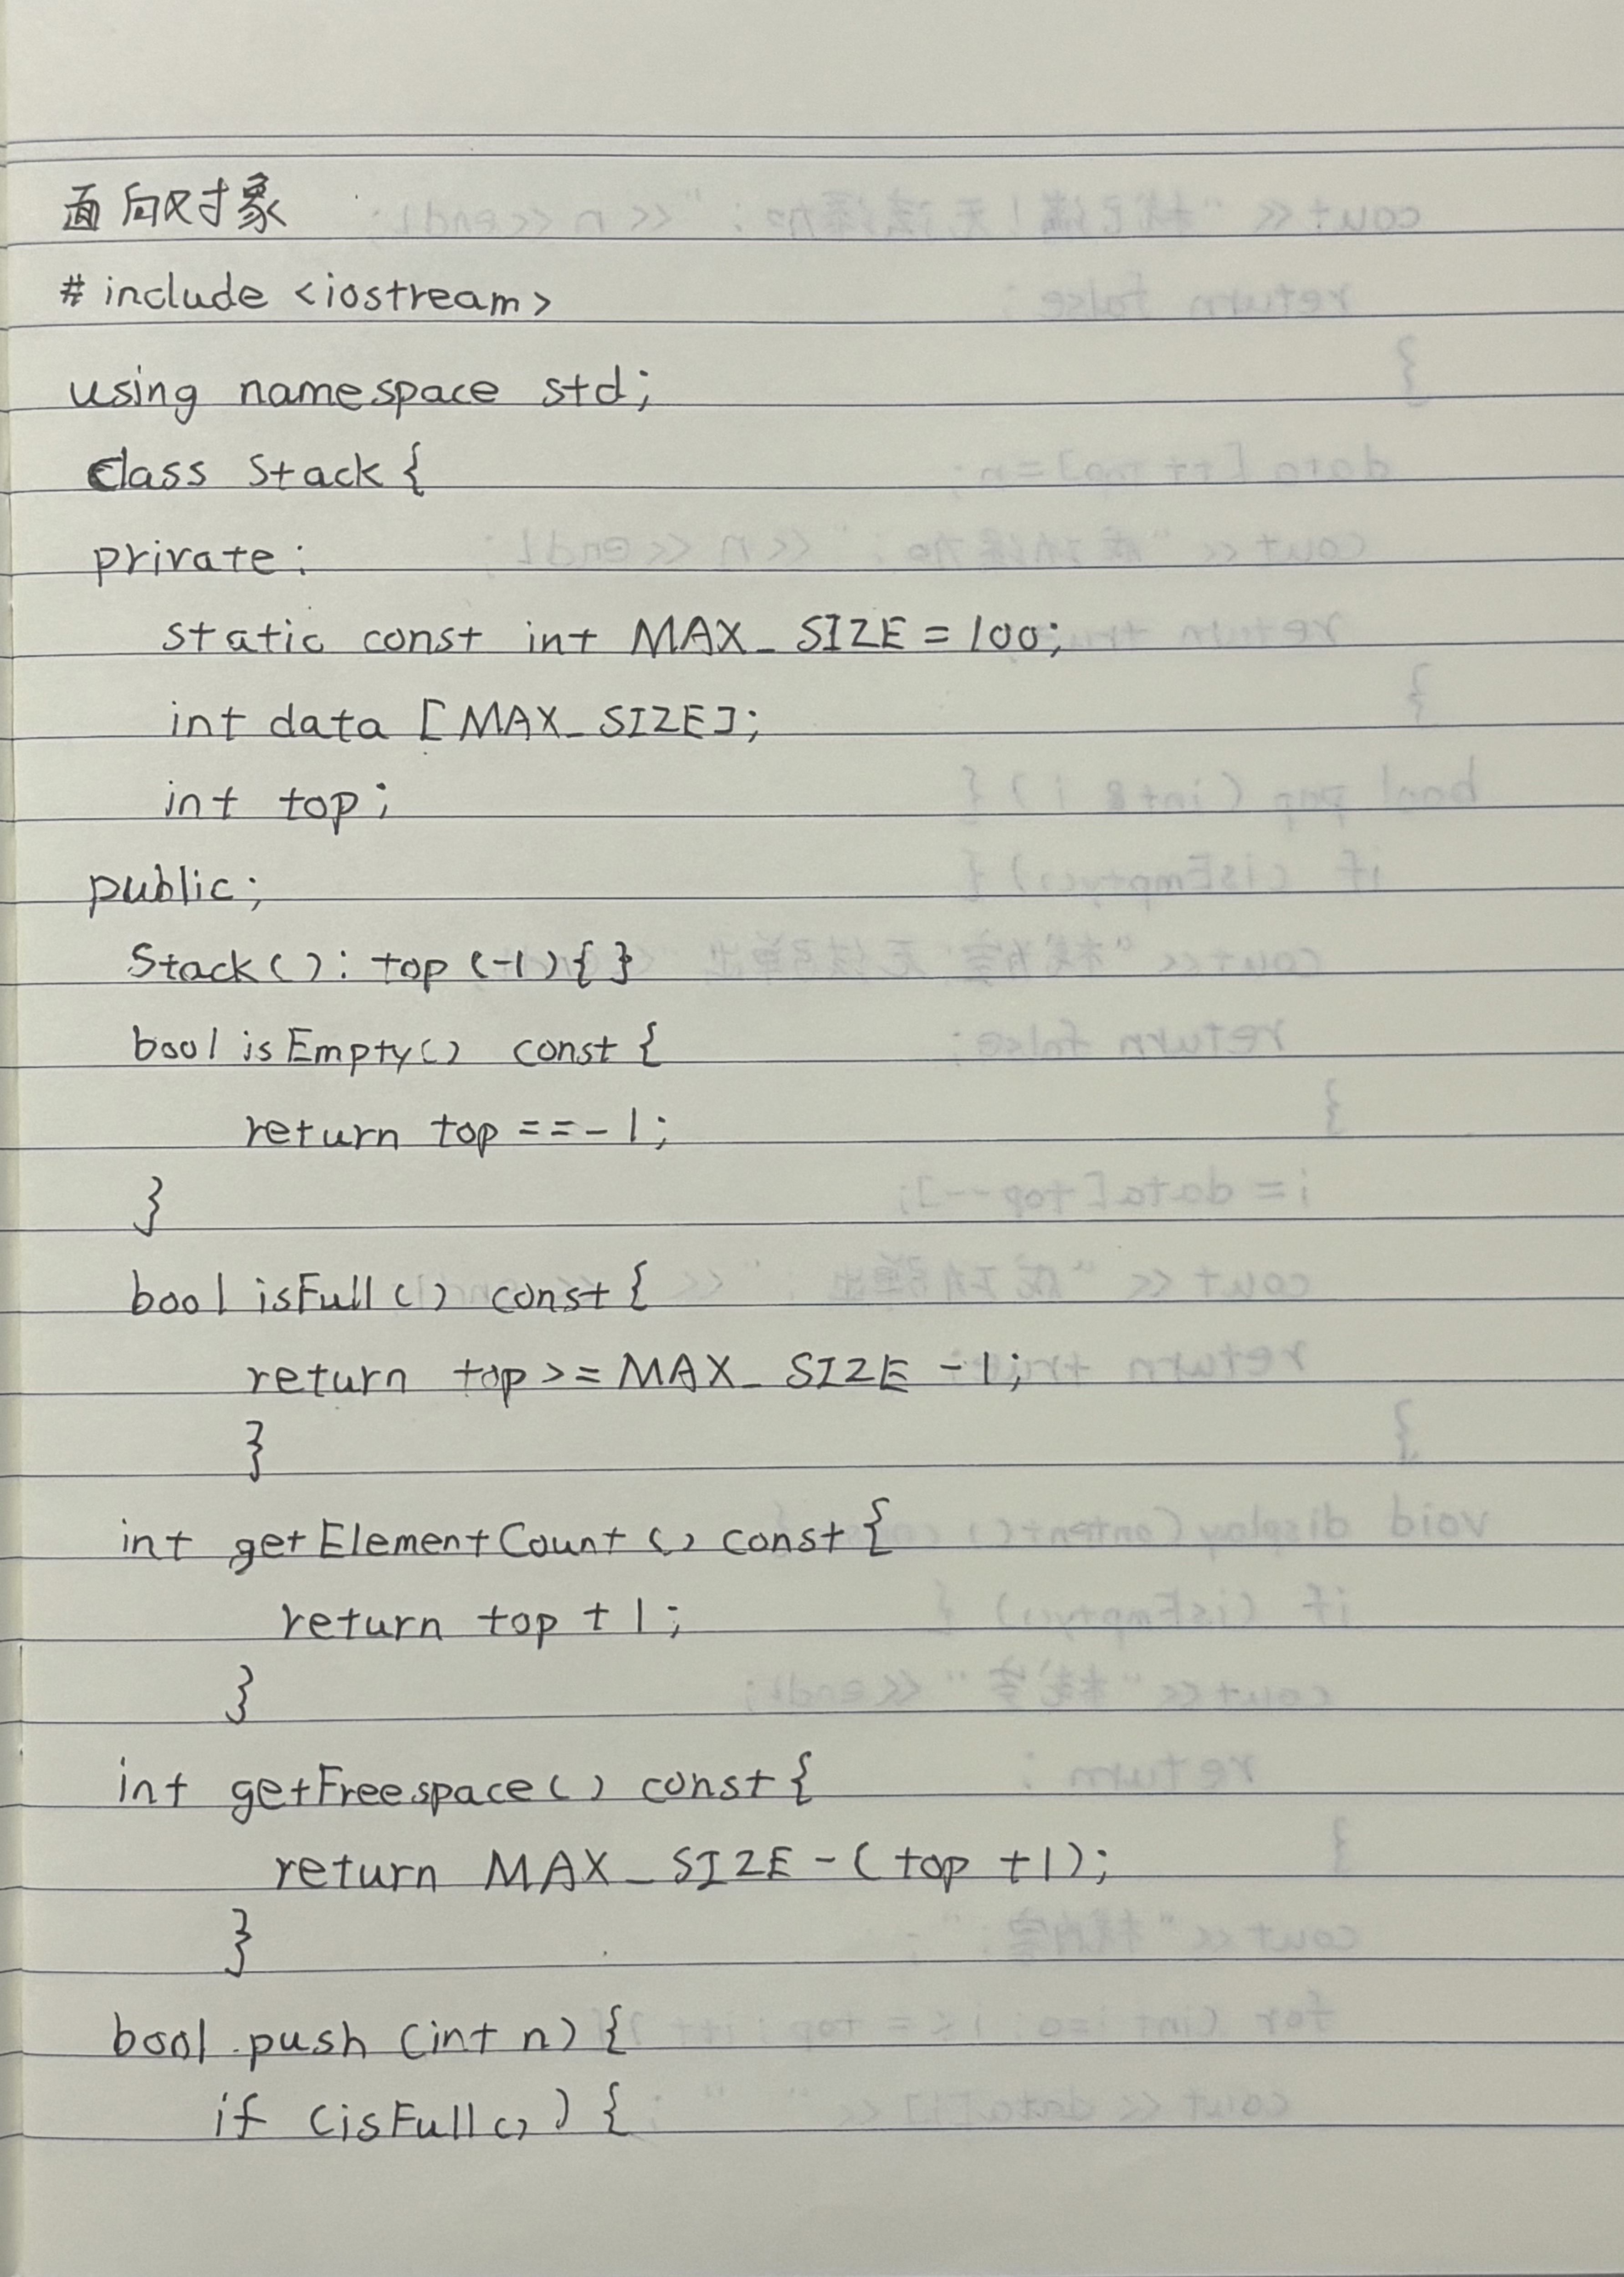 面向对象
# include <iostream>
using namespace std;
class Stack {
private:
static const int MAX_SIZE = 100;
int data [MAX_SIZE];
int top;
public;
Stack(): top (-1){ }
bool isEmpty() const {
return top == -1;
}
bool isFull () const {
return top >= MAX_SIZE -1;
}
int getElementCount () const {
return top + 1;
}
int getFreespace () const {
return MAX_SIZE - (top +1);
}
bool push (int n) {
if (isFull()) {